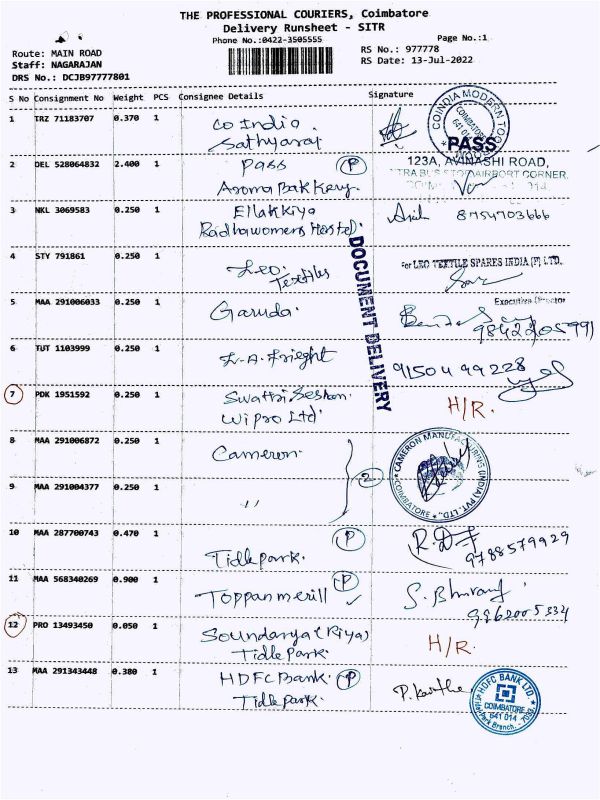 THE PROFESSIONAL COURIERS, Coimbatore
Delivery Runsheet - SITR
Phone No.:0422-3505555
Page No.:1
Route: MAIN ROAD
RS No.: 977778
Staff: NAGARAJAN
RS Date: 13-Jul-2022
DRS No.: DCJB97777801
S No Consignment No Weight PCS Consignee Details Signature
1 TRZ 71183707 0.370 1 Co India
Sathyaraj
COINDIA MODERN
COIMBATORE
641 014
PASS
2 DEL 528064832 2.400 1 Pass P
123A, AVINASHI ROAD,
Aroma Bakkery.
3 NKL 3069583 0.250 1 Ellakkiya
Radhawomens Hostel. 8754703666
4 STY 791861 0.250 1 Leo
Textiles
For LEO TEXTILE SPARES INDIA (P) LTD.
Executive Director
5 MAA 291006033 0.250 1 Garuda.
9842205991
DOCUMENT DELIVERY
6 TUT 1103999 0.250 1 L.A. Frieght
91504 99228
7 PDK 1951592 0.250 1 Swathi
Wipro Ltd. H/R.
8 MAA 291006872 0.250 1 Cameron.
2
CAMERON MANUFACTURING (INDIA) PVT. LTD.,
COIMBATORE
9 MAA 291004377 0.250 1 "
10 MAA 287700743 0.470 1 Tidle park. P
9788579929
11 MAA 568340269 0.900 1 Toppan merill P
12 PRO 13493450 0.050 1 Soundarya (Riya)
Tidle Park. H/R.
13 MAA 291343448 0.380 1 HDFC Bank. P
Tidle park. P. Karthe
HDFC BANK LTD.
COIMBATORE
641 014